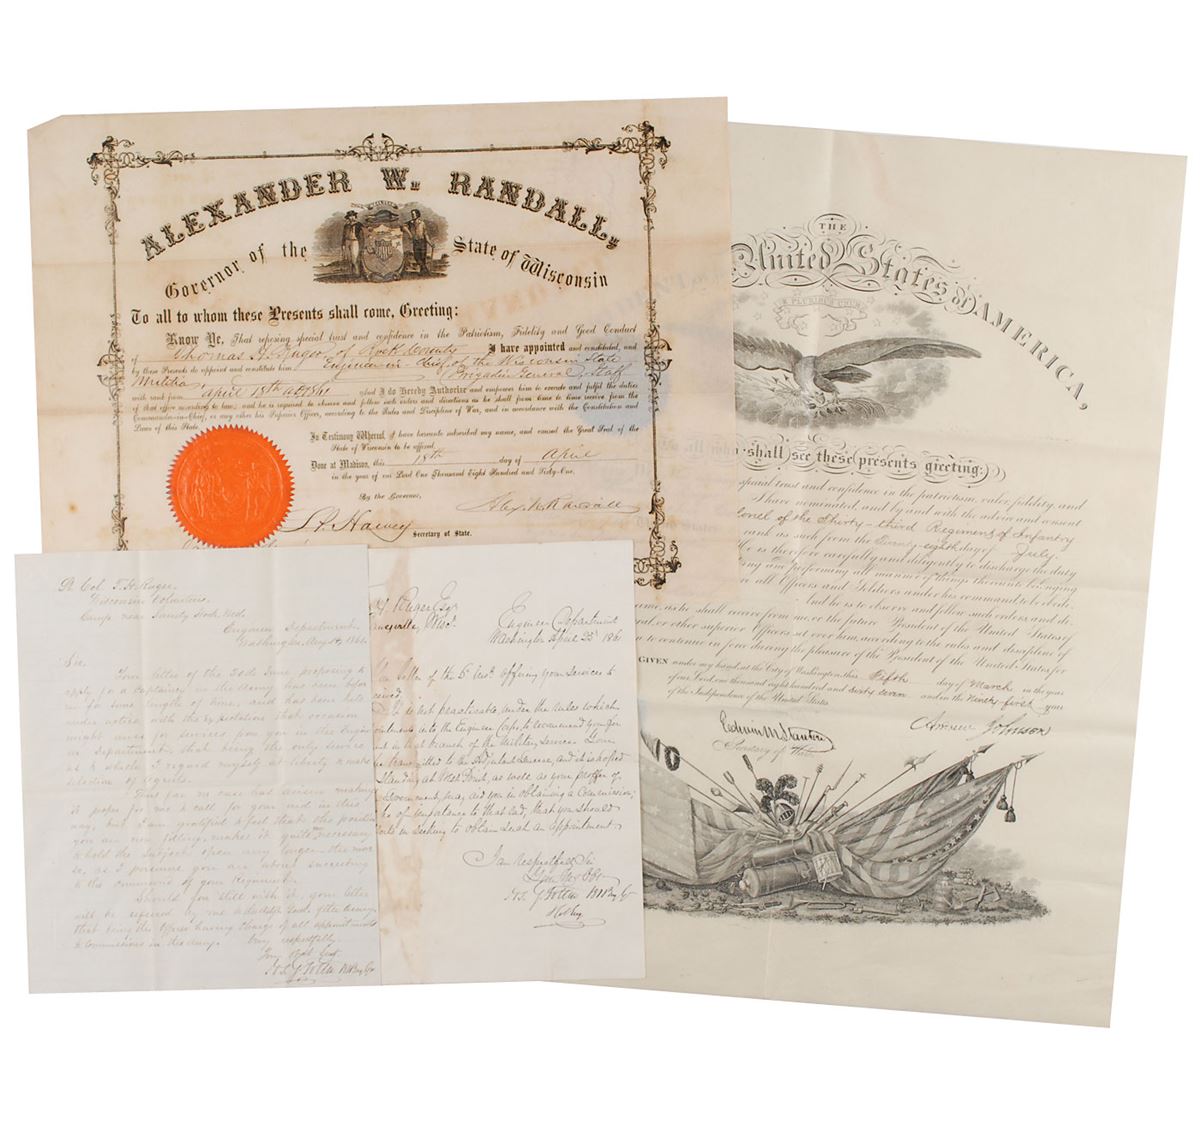 ALEXANDER W. RANDALL,
Governor of the State of Wisconsin
To all to whom these Presents shall come, Greeting:
Know Ye, That reposing special trust and confidence in the Patriotism, Fidelity and Good Conduct
of Thomas H. Ruger, of Rock County I have appointed and constituted, and
by these Presents do appoint and constitute him Engineer-in-chief of the Wisconsin State
Militia, Brigadier General, Staff
with rank from April 18th 1861 and I do Hereby Authorize and empower him to execute and fulfil the duties
of that office according to law; and he is required to observe and follow such orders and directions as he shall from time to time receive from the
Commander-in-Chief, or any other his Superior Officer, according to the Rules and Discipline of War, and in accordance with the Constitution and
Laws of this State.
In Testimony Whereof, I have hereunto subscribed my name, and caused the Great Seal of the
State of Wisconsin to be affixed.
Done at Madison, this 18th day of April
in the year of our Lord One Thousand Eight Hundred and Sixty-One.
By the Governor,
Alex W. Randall
L. P. Harvey Secretary of State.
THE
United States of AMERICA,
E PLURIBUS UNUM
shall see these presents greeting:
special trust and confidence in the patriotism, valor, fidelity, and
I have nominated, and by and with the advice and consent
Colonel of the Thirty-third Regiment of Infantry
rank as such from the Twenty-eighth day of July
He is therefore carefully and diligently to discharge the duty
doing and performing all manner of things thereunto belonging
all Officers and Soldiers under his command to be obedient
And he is to observe and follow such orders, and di-
time, as he shall receive from me, or the future President of the United States of
or other superior Officers set over him, according to the rules and discipline of
to continue in force during the pleasure of the President of the United States for
GIVEN under my hand, at the City of Washington, this Fifth day of March in the year
of our Lord one thousand eight hundred and sixty seven and in the Ninety-first year
of the Independence of the United States.
Andrew Johnson
Edwin M. Stanton
Secretary of War.
Lt Col. T. H. Ruger,
Wisconsin Volunteers,
Camp near Sandy Hook Md.
Engineer Department
Washington, Augst, 1861
Sir,
Your letter of the 30th June, proposing to
apply for a Captaincy in the Army has been before
me for some length of time, and has been kept
under notice with the expectation that occasion
might arise for services from you in the Engineer
Department, that being the only service
as to which I regard myself at liberty to make
selection of agents.
This far no case has arisen making
it proper for me to call for your aid in this
way, but I am gratified to find that the position
you are now filling makes it quite unnecessary
to hold the subject open any longer, the more
so, as I presume you are about succeeding
to the command of your Regiment.
Should you still wish it, your letter
will be referred by me to the Adjutant Genl. of the Army,
that being the Office having charge of all appointments
& commissions in the Army. Very respectfully
Your Obdt Servt
Jos. G. Totten
Ruger Esq
Janesville, Wis.
Engineer Department
Washington April 23d 1861
letter of the offering your services to
received.
It is not practicable, under the rules which
into the Engineer Corps, to recommend you for
in that branch of the Military Service. Your
transmitted to the Adjutant General, and it is
standing at West Point, as well as your proffer of
Government, may aid you in obtaining a Commission;
be of importance to that end, that you should
in seeking to obtain such an appointment.
I am respectfully Sir
Jos. G. Totten